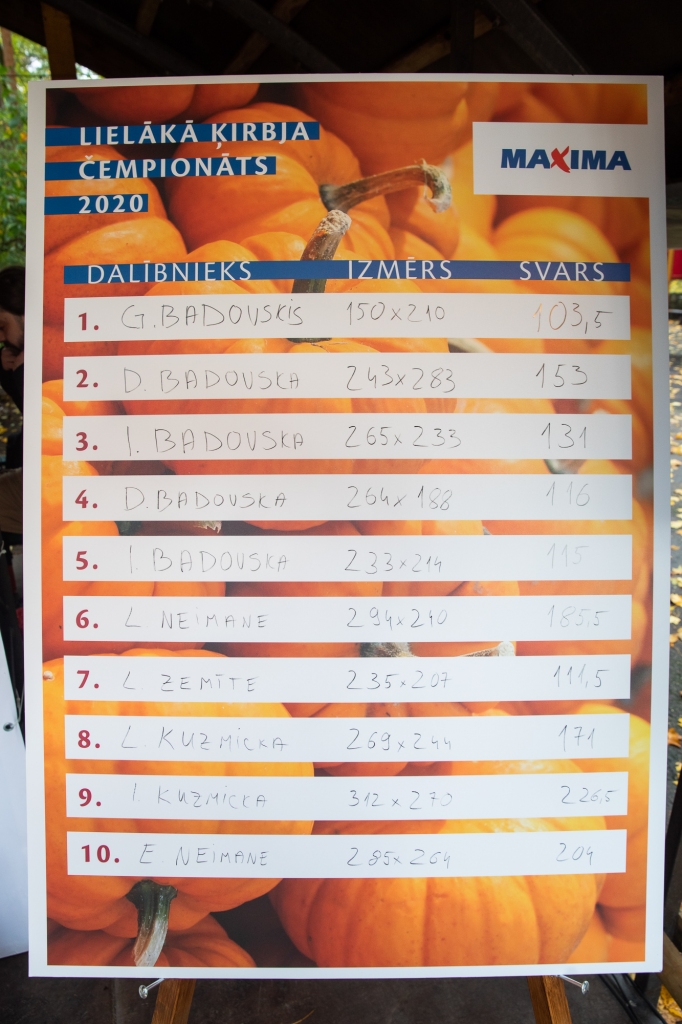 LIELĀKĀ ĶIRBJA
ČEMPIONĀTS
2020
MAXIMA
DALĪBNIEKS IZMĒRS SVARS
1. G. BADOVSKIS 150x210 103,5
2. D. BADOVSKA 243x283 153
3. I. BADOVSKA 265x233 131
4. D. BADOVSKA 264x188 116
5. I. BADOVSKA 233x214 115
6. L NEIMANE 294x240 185,5
7. L. ZEMĪTE 235x207 111,5
8. L. KUZMICKA 269x244 171
9. I. KUZMICKA 312x270 226,5
10. E. NEIMANE 285x264 204